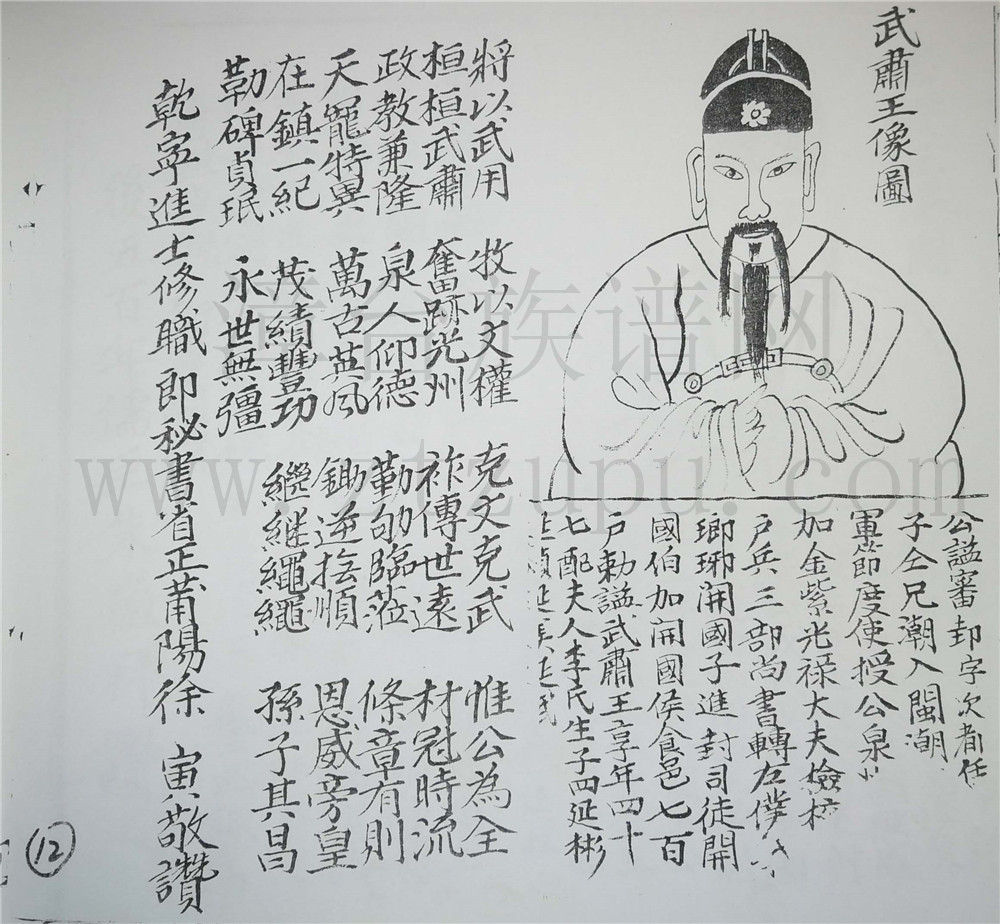 武肅王像圖
公諡審邽字次都任
子仝兄潮入閩潮
軍節度使授公泉
加金紫光祿大夫檢校
戶兵三部尚書轉左僕
瑯琊開國子進封司徒開
國伯加開國侯食邑七百
戶勅諡武肅王享年四十
七配夫人李氏生子四延彬
延
將以武用 牧以文權 克文克武 惟公為全
桓桓武肅 奮跡光州 祚傳世遠 材冠時流
政教兼隆 泉人仰德 勤劬臨蒞 條章有則
天寵特異 萬古英風 鋤逆撫順 恩威旁皇
在鎮一紀 茂績豐功 繼繼繩繩 孫子其昌
勒碑貞珉 永世無彊
乾寧進士修職即秘書省正莆陽徐 寅敬讚
12
清台族谱网
www.qtzupu.com